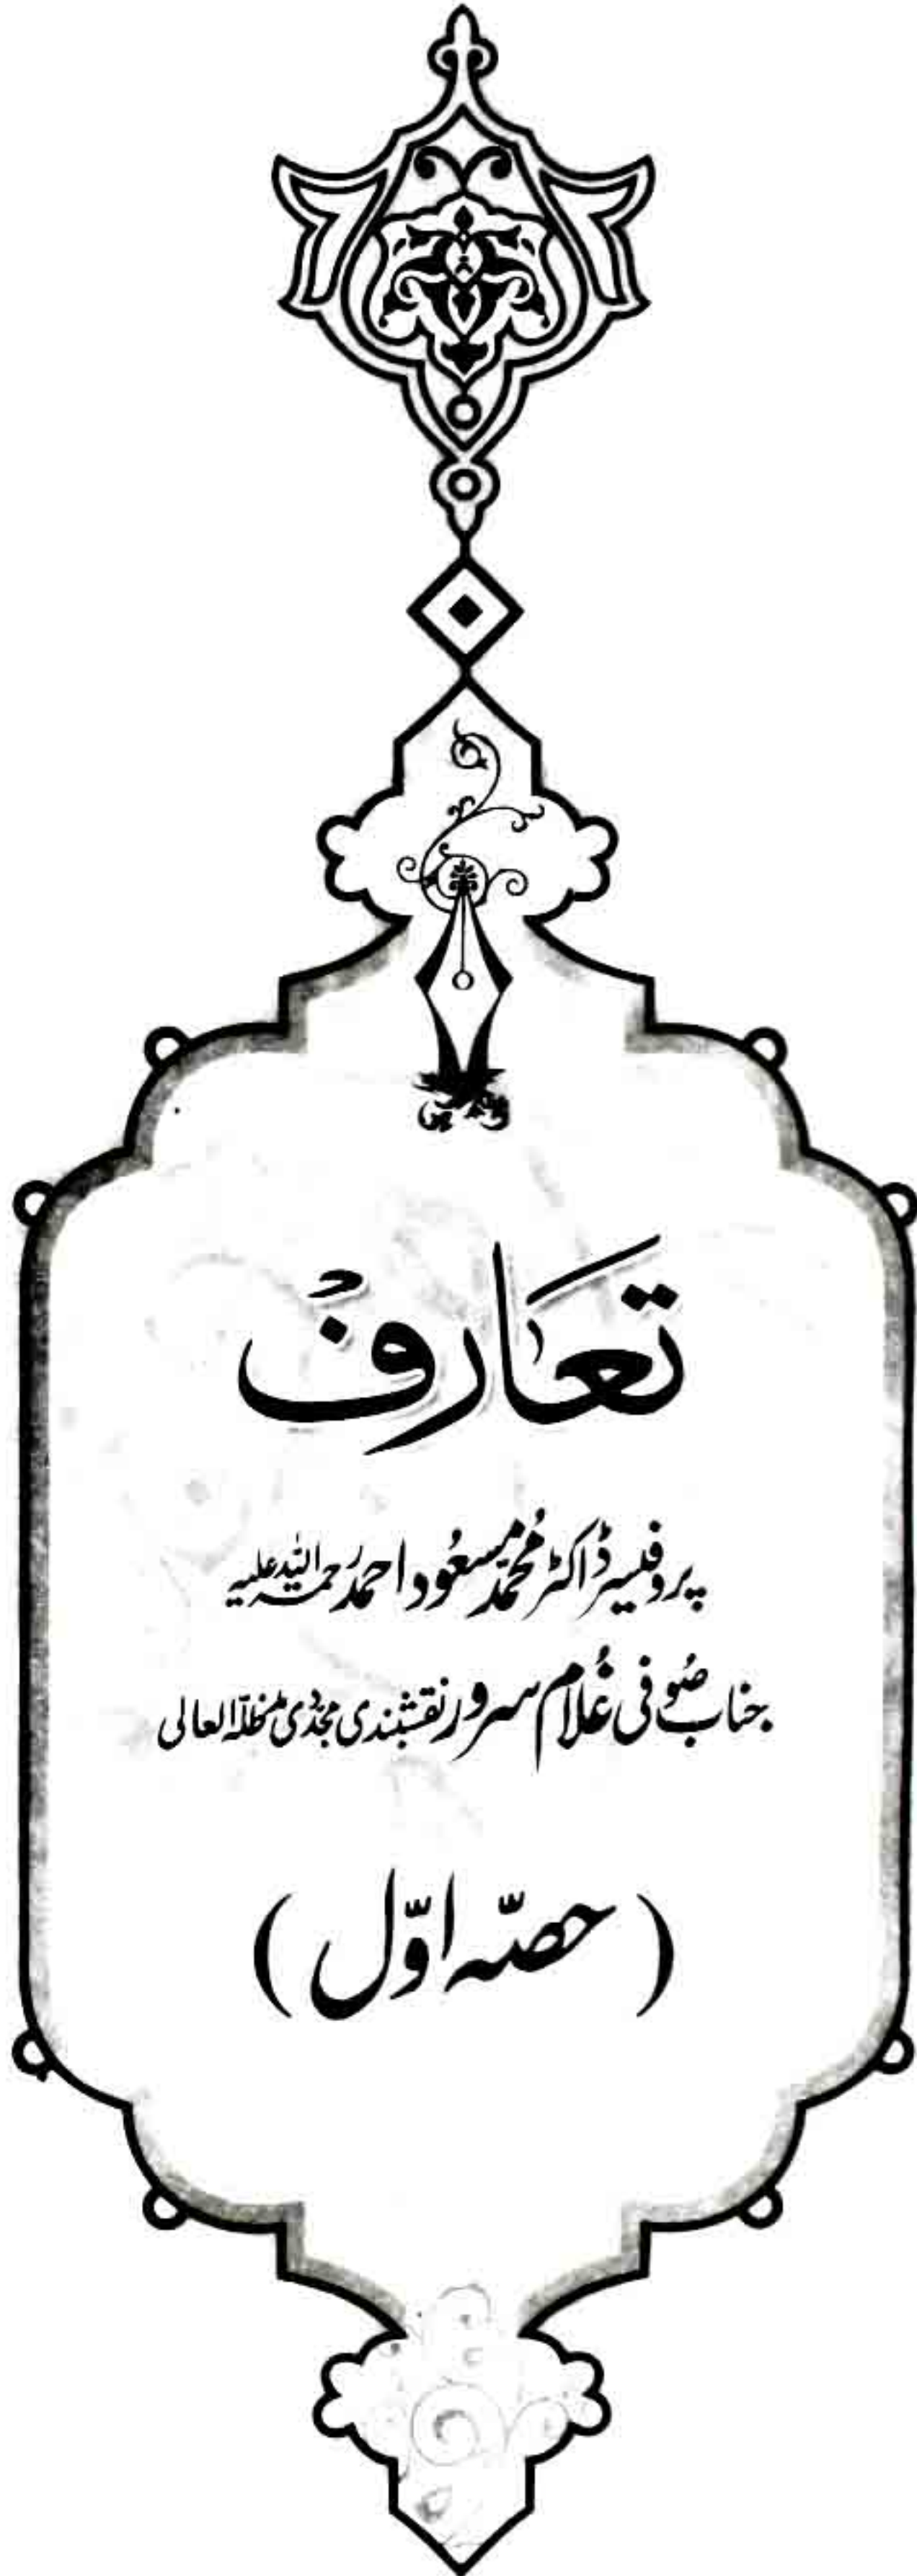 تعَارفْ
پروفیسر ڈاکٹر مُحمّد مسعُود احمد رحمۃ اللہ علیہ
جناب صُوفی غُلام سرور نقشبندی مجدّدی مدظلہ العالی
( حصّہ اوّل )